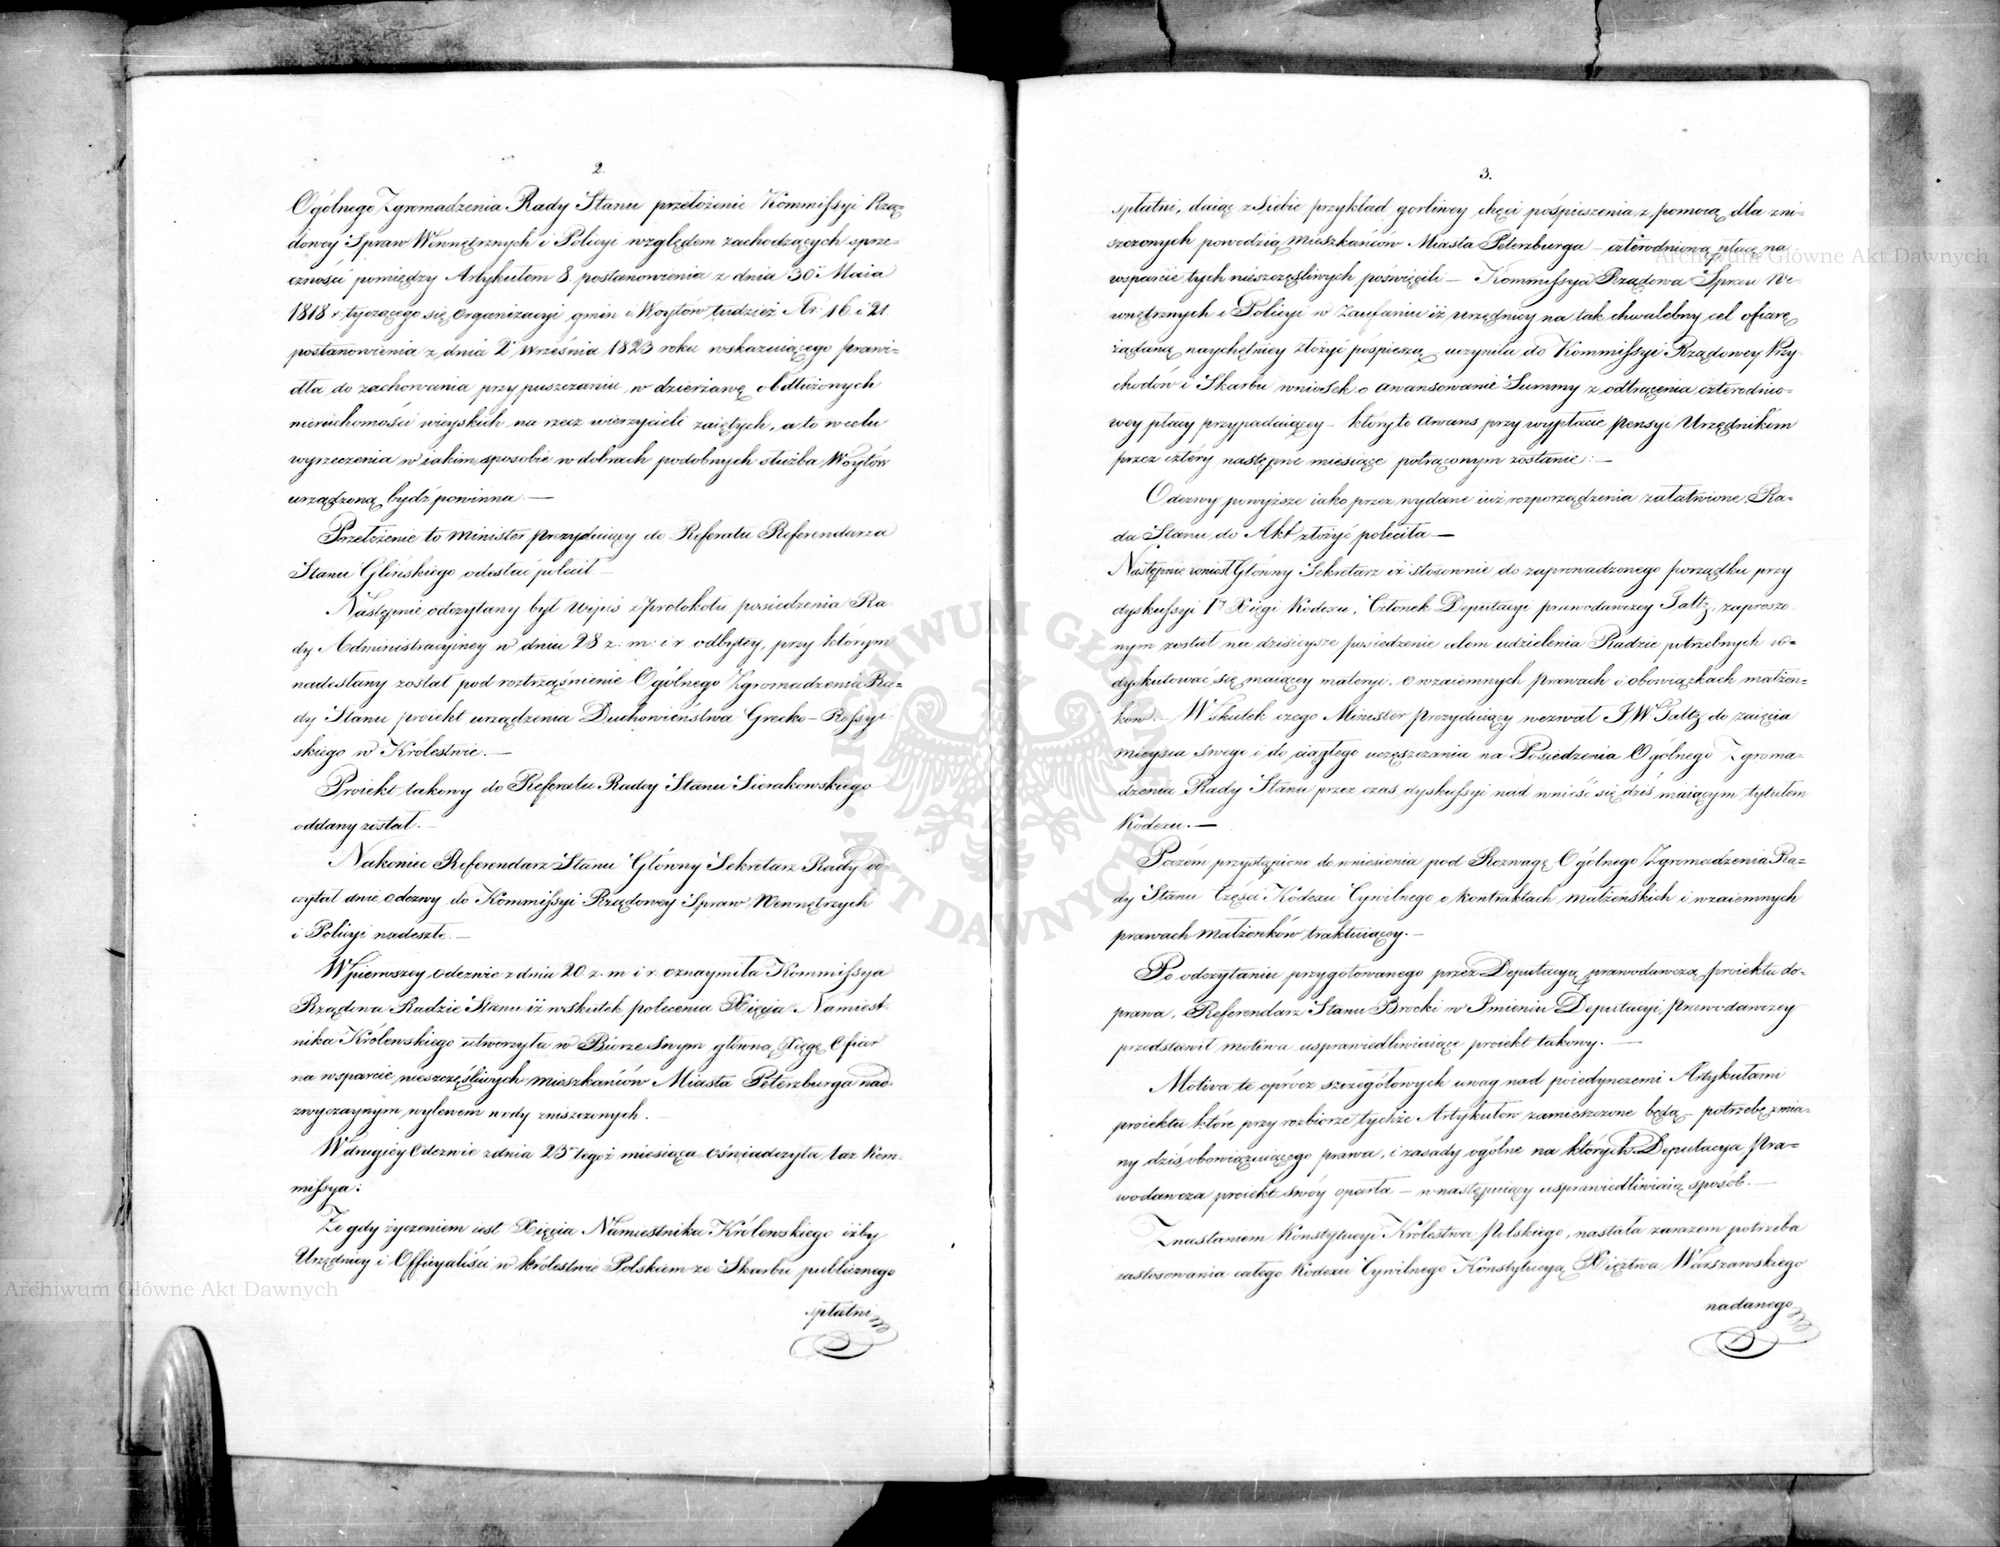 2.
Ogólnego Zgromadzenia Rady Stanu przełożenie Kommissyi Rzą=
dowey Spraw Wewnętrznych i Policyi względem zachodzących sprze=
czności pomiędzy Artykułem 8 postanowienia z dnia 30 Maia
1818 r. tyczącego się organizacyi gmin i Woytow tudzież Ar: 16. i 21.
postanowienia z dnia 2 Września 1823 roku wskazuiącego prawi=
dła do zachowania przy puszczaniu w dzierżawę obdłużonych
nieruchomości wieyskich na rzecz wierzycieli zaiętych, a to w celu
wyrzeczenia w iakim sposobie w dobrach podobnych służba Woytów
urządzoną bydź powinna. —
Przełożenie to Minister Prezyduiący do Referatu Referendarza
Stanu Glińskiego odesłać polecił —
Następnie odczytany był Wypis z Protokołu posiedzenia Ra
dy Administracyiney w dniu 28 z. m. i r. odbytey, przy którym
nadesłany został pod roztrząśnienie Ogólnego Zgromadzenia Ra=
dy Stanu proiekt urządzenia Duchowieństwa Grecko-Rossyi
skiego w Królestwie. —
Proiekt takowy do Referatu Radcy Stanu Sierakowskiego
oddany został. —
Nakoniec Referendarz Stanu Główny Sekretarz Rady od=
czytał dwie odezwy do Kommissyi Rządowey Spraw Wewnętrzych
i Policyi nadeszłe. —
W pierwszey odezwie z dnia 20 z. m i r. oznaymiła Kommissya
Rządowa Radzie Stanu iż w skutek polecenia Xięcia Namiest=
nika Królewskiego utworzyła w Biorze swym główną Xięgę Ofiar
na wsparcie nieszczęśliwych mieszkańców Miasta Petersburga nad=
zwyczaynym wylewem wody zniszczonych. —
W drugiey Odezwie z dnia 23 tegoż miesiąca oświadczyła taż Kom=
missya:
Że gdy życzeniem iest Xięcia Namiestnika Królewskiego iżby
Urzędnicy i Officyaliści w królestwie Polskiem ze Skarbu publicznego
spłatni
3.
spłatni, daiąc z siebie przykład gorliwey chęci pośpieszenia z pomocą dla zni=
szczonych powodzią mieszkańców Miasta Petersburga — czterodniową płacę na
wsparcie tych nieszczęśliwych poświęcili — Kommissya Rządowa Spraw We=
wnętrznych i Policyi w zaufaniu iż urzędnicy na tak chwalebny cel ofiarę
żądaną naychętniey złożyć pośpieszą uczyniła do Kommissyi Rządowey Przy=
chodów i Skarbu wniosek o awansowanie Summy z odtrącenia czterodnio=
wey płacy przypadaiącey — który to Awans przy wypłacie pensyi Urzędnikom
przez cztery następne miesiące potrąconym zostanie: —
Odezwy powyższe iako przez wydane iuż rozporządzenia załatwione, Ra=
da Stanu do Akt złożyć poleciła —
Następnie wniosł Główny Sekretarz iż stosownie do zaprowadzonego porządku przy
dyskussyi I Xięgi Kodexu, Członek Deputacyi prawodawczey Faltz, zaproszo=
nym został na dzisieysze posiedzenie celem udzielenia Radzie potrzebnych w=
dyskutować się maiącey materyi, o wzaiemnych prawach i obowiązkach małżon=
ków. — W skutek czego Minister Prezyduiący wezwał JW. Faltz do zaięcia
mieysca swego i do ciągłego uczęszczania na Posiedzenia Ogólnego Zgroma=
dzenia Rady Stanu przez czas dyskussyi nad wnieść się dziś maiącym tytułem
Kodexu. —
Poczém przystąpiono do wniesienia pod Rozwagę Ogólnego Zgromadzenia Ra=
dy Stanu Części Kodexu Cywilnego o kontraktach małżeńskich i wzaiemnych
prawach Małżonków traktuiącey. —
Po odczytaniu przygotowanego przez Deputacyą prawodawczą proiektu do=
prawa, Referendarz Stanu Brocki w Imieniu Deputacyi Prawodawczey
przedstawił motiwa usprawiedliwiaiące proiekt takowy. —
Motiwa te oprócz szczegółowych uwag nad poiedynczemi Artykułami
proiektu które przy rozbiorze tychże Artykułow zamieszczone będą — potrzebę zmia=
ny dziś obowiązuiącego prawa, i zasady ogólne na których Deputacya Pra=
wodawcza proiekt swóy oparła — w następuiący usprawiedliwiaią sposób. —
Z nastaniem Konstytucyi Królestwa Polskiego, nastała zarazem potrzeba
zastosowania całego Kodexu Cywilnego Konstytucyą Xięztwa Warszawskiego
nadanego
Archiwum Główne Akt Dawnych
Archiwum Główne Akt Dawnych
ARCHIWUM GŁÓWNE AKT DAWNYCH